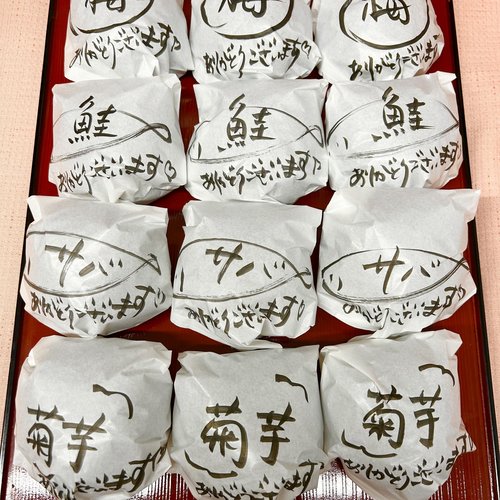 梅
ありがとうございます♡
梅
ありがとうございます♡
梅
ありがとうございます
鮭
ありがとうございます♡
鮭
ありがとうございます♡
鮭
ありがとうございます♡
サバ
ありがとうございます♡
サバ
ありがとうございます♡
サバ
ありがとうございます♡
菊芋
ありがとうございます
菊芋
ありがとうございます
菊芋
ありがとうございます